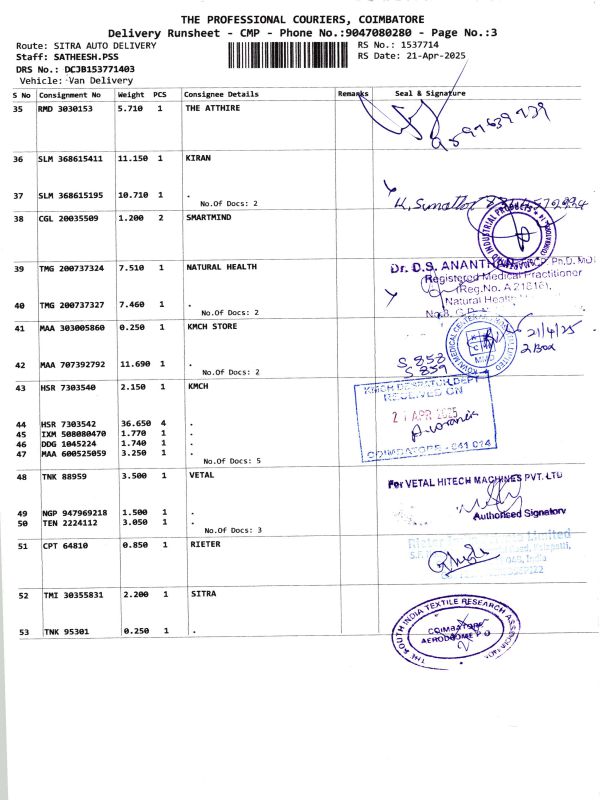 THE PROFESSIONAL COURIERS, COIMBATORE
Delivery Runsheet - CMP - Phone No.:9047080280 - Page No.:3
Route: SITRA AUTO DELIVERY
RS No.: 1537714
Staff: SATHEESH.PSS
RS Date: 21-Apr-2025
DRS No.: DCJB153771403
Vehicle: Van Delivery
S No Consignment No Weight PCS Consignee Details Remarks Seal & Signature
35 RMD 3030153 5.710 1 THE ATTHIRE
9597639739
36 SLM 368615411 11.150 1 KIRAN
37 SLM 368615195 10.710 1 .
No.Of Docs: 2
38 CGL 20035509 1.200 2 SMARTMIND
INDUSTRIAL PRODUCTS
39 TMG 200737324 7.510 1 NATURAL HEALTH
Dr. D.S. ANANTH
Registered Medical Practitioner
(Reg.No. A 21816),
Natural Health
40 TMG 200737327 7.460 1 .
No.Of Docs: 2
41 MAA 303005860 0.250 1 KMCH STORE
21/4/25
2 Box
42 MAA 707392792 11.690 1 .
No.Of Docs: 2
S 858
S 859
43 HSR 7303540 2.150 1 KMCH
KMCH DESPATCH DEPT
RECEIVED ON
21 APR 2025
COIMBATORE - 641 014
44 HSR 7303542 36.650 4 .
45 IXM 508080470 1.770 1 .
46 DDG 1045224 1.740 1 .
47 MAA 600525059 3.250 1 .
No.Of Docs: 5
48 TNK 88959 3.500 1 VETAL
For VETAL HITECH MACHINES PVT. LTD
Authorised Signatory
49 NGP 947969218 1.500 1 .
50 TEN 2224112 3.050 1 .
No.Of Docs: 3
51 CPT 64810 0.850 1 RIETER
Limited
India
52 TMI 30355831 2.200 1 SITRA
THE SOUTH INDIA TEXTILE RESEARCH
COIMBATORE
AERODROME P O
53 TNK 95301 0.250 1 .